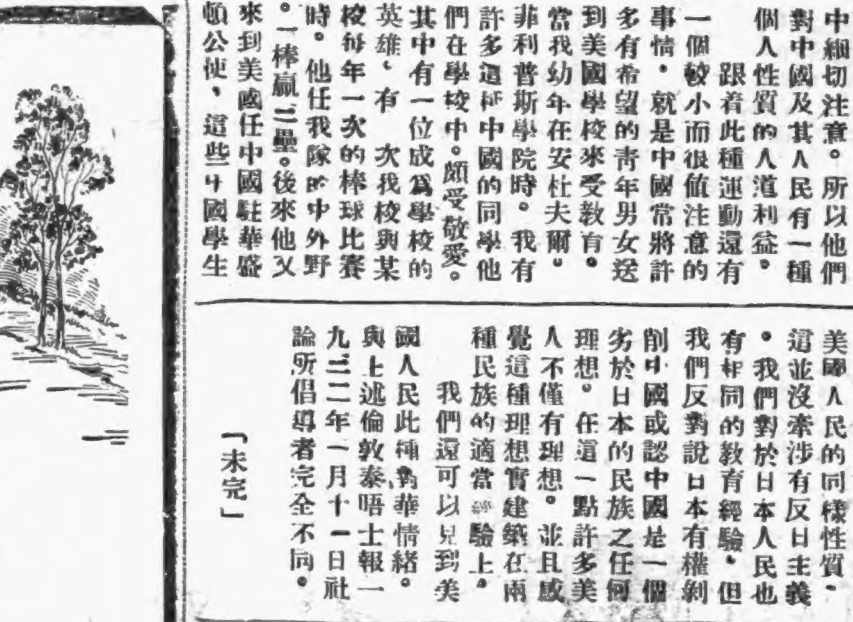 中細切注意。所以他們
對中國及其人民有一種
個人性質的人道利益。
跟着此種運動還有
一個較小而很值注意的
事情。就是中國常將許
多有希望的青年男女送
到美國學校來受敎育。
當我幼年在安杜夫爾。
菲利普斯學院時。我有
許多這種中國的同學他
們在學校中。頗受敬愛。
其中有一位成爲學校的
英雄、有 次我校與某
校每年一次的棒球比賽
時。他任我隊的中外野
。一棒贏三壘。後來他又
來到美國任中國駐華盛
頓公使、這些中國學生
美國人民的同樣性質、
這並沒牽涉有反日主義
。我們對於日本人民也
有相同的敎育經驗、但
我們反對說日本有權剝
削中國或認中國是一個
劣於日本的民族之任何
理想。在這一點許多美
人不僅有理想。並且感
覺這種理想實建築在兩
種民族的適當經驗上。
我們還可以見到美
國人民此種對華情緒。
與上述倫敦泰晤士報一
九三二年一月十一日社
論所倡導者完全不同。
「未完」